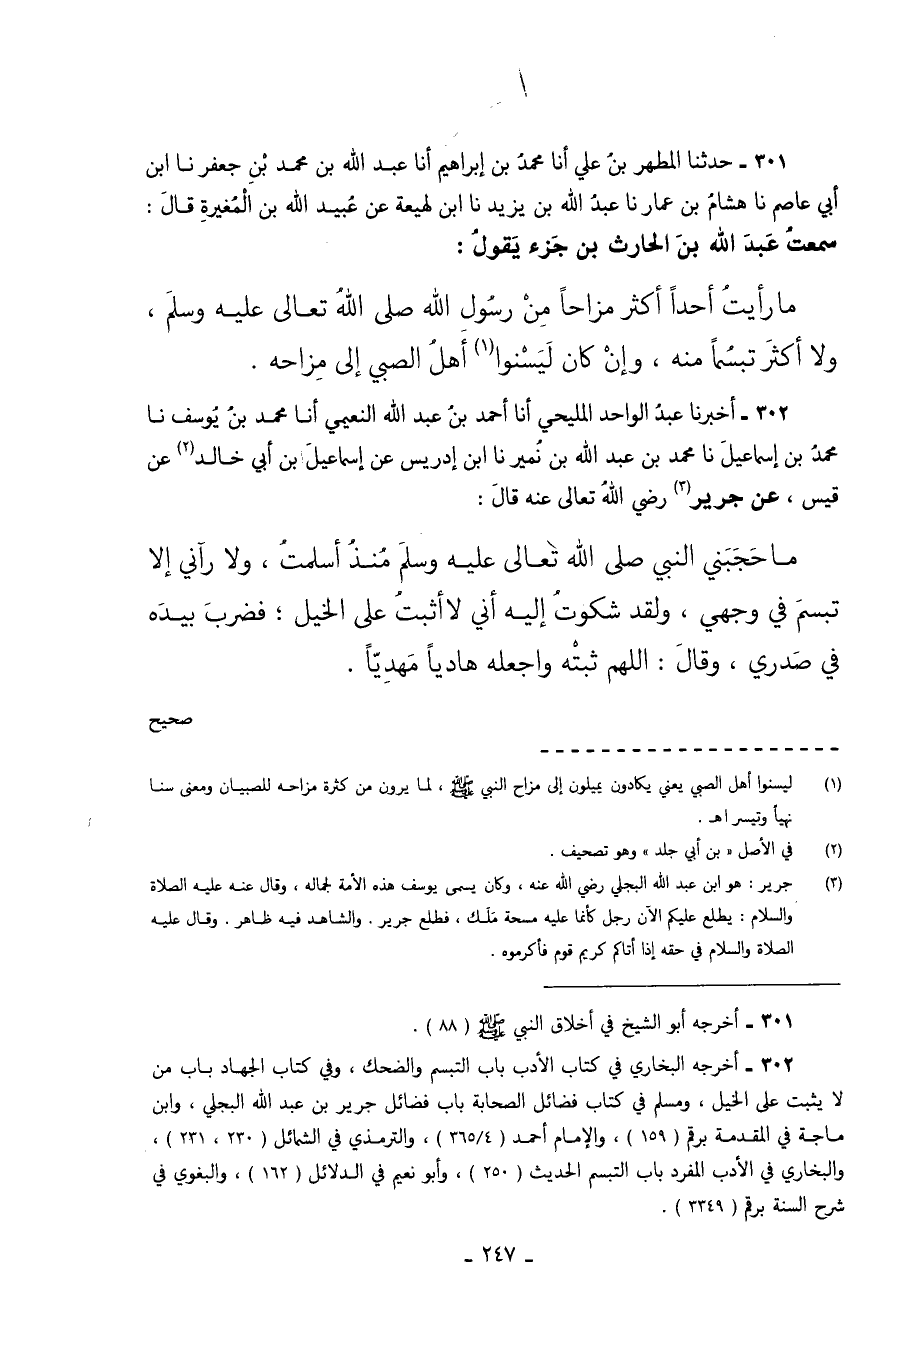 ٣٠١ ـ حدثنا المطهر بنُ علي أنا محمدُ بن إبراهيم أنا عبد الله بن محمد بْنِ جعفر نا ابن
أبي عاصم نا هشامُ بن عمار نا عبدُ الله بن يزيد نا ابن لهيعة عن عُبيد الله بن الْمُغيرةِ قالَ :
سمعتُ عَبدَ الله بنَ الحارث بن جَزء يَقولُ :
مارأيتُ أحداً أكثر مزاحاً مِنْ رسُول الله صلى اللهُ تعالى عليه وسلمَ ،
ولا أكثرَ تبسُّماً منه ، وإنْ كان لَيَسْنوا(١) أهلُ الصبي إلى مِزاحه .
٣٠٢ ـ أخبرنا عبدُ الواحد المليحي أنا أحمد بنُ عبد الله النعيمي أنا محمد بنُ يُوسف نا
محمدُ بن إسماعيلَ نا محمد بن عبد الله بن نُمير نا ابن إدريس عن إسماعيلَ بن أبي خالد(٢) عن
قيس ، عن جرير(٣) رضي اللهُ تعالى عنه قالَ :
ماحَجَبَني النبي صلى الله تعالى عليه وسلمَ مُنذُ أسلمتُ ، ولا رآني إلا
تبسمَ في وجهي ، ولقد شكوتُ إليه أني لاأثبتُ على الخيل ؛ فضربَ بيدَه
في صَدري ، وقالَ : اللهم ثبتْه واجعله هادياً مَهدِيّاً .
صحيح
(١) ليسنوا أهل الصبي يعني يكادون يميلون إلى مزاح النبي ﷺ ، لما يرون من كثرة مزاحه للصبيان ومعنى سنا
تهيأ وتيسر اهـ .
(٢) في الأصل « بن أبي جلد » وهو تصحيف .
(٣) جرير : هو ابن عبد الله البجلي رضي الله عنه ، وكان يسمى يوسف هذه الأمة لجماله ، وقال عنه عليه الصلاة
والسلام : يطلع عليكم الآن رجل كأنما عليه مسحة مَلَك ، فطلع جرير . والشاهد فيه ظاهر . وقال عليه
الصلاة والسلام في حقه إذا أتاكم كريم قوم فأكرموه .
٣٠١ ـ أخرجه أبو الشيخ في أخلاق النبي ﷺ ( ٨٨ ) .
٣٠٢ ـ أخرجه البخاري في كتاب الأدب باب التبسم والضحك ، وفي كتاب الجهاد باب من
لا يثبت على الخيل ، ومسلم في كتاب فضائل الصحابة باب فضائل جرير بن عبد الله البجلي ، وابن
ماجة في المقدمة برقم ( ١٥٩ ) ، والإمام أحمد ( ٣٦٥/٤ ) ، والترمذي في الشمائل ( ٢٣٠ ، ٢٣١ ) ،
والبخاري في الأدب المفرد باب التبسم الحديث ( ٢٥٠ ) ، وأبو نعيم في الدلائل ( ١٦٢ ) ، والبغوي في
شرح السنة برقم ( ٣٣٤٩ ) .
ـ ٢٤٧ ـ